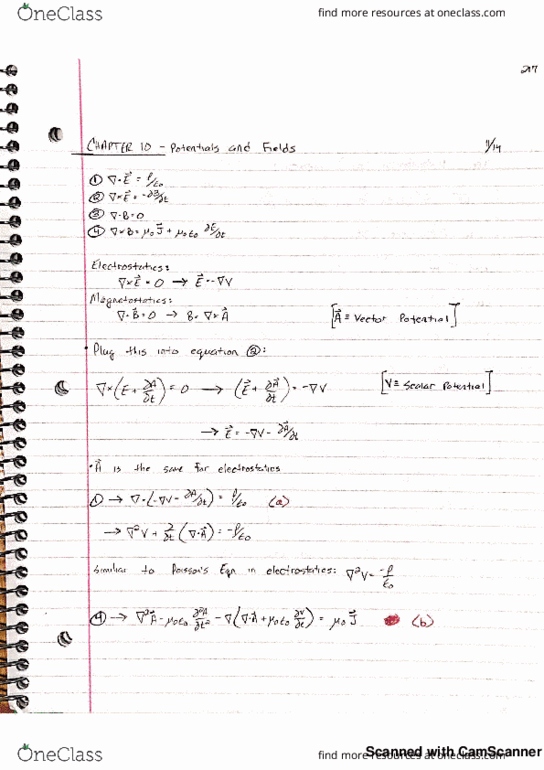 OneClass
find more resources at oneclass.com
217
CHAPTER 10 - Potentials and Fields 11/14
① ∇·E⃗ = ρ/ε₀
② ∇×E⃗ = -∂B/∂t
③ ∇·B = 0
④ ∇×B = μ₀J⃗ + μ₀ε₀ ∂E/∂t
Electrostatics:
∇×E⃗ = 0 → E⃗ = -∇V
Magnetostatics:
∇·B⃗ = 0 → B = ∇×A⃗ [A⃗ ≡ Vector Potential]
• Plug this into equation ②:
∇×(E + ∂A⃗/∂t) = 0 → (E⃗ + ∂A⃗/∂t) = -∇V [V ≡ Scalar Potential]
→ E⃗ = -∇V - ∂A⃗/∂t
• A⃗ is the same for electrostatics
① → ∇·(-∇V - ∂A⃗/∂t) = ρ/ε₀ (a)
→ ∇²V + ∂/∂t (∇·A⃗) = -ρ/ε₀
Similar to Poisson's Eqn in electrostatics: ∇²V = -ρ/ε₀
④ → ∇²A⃗ - μ₀ε₀ ∂²A/∂t² - ∇(∇·A + μ₀ε₀ ∂V/∂t) = μ₀J⃗ (b)
OneClass
find more resources at oneclass.com
Scanned with CamScanner